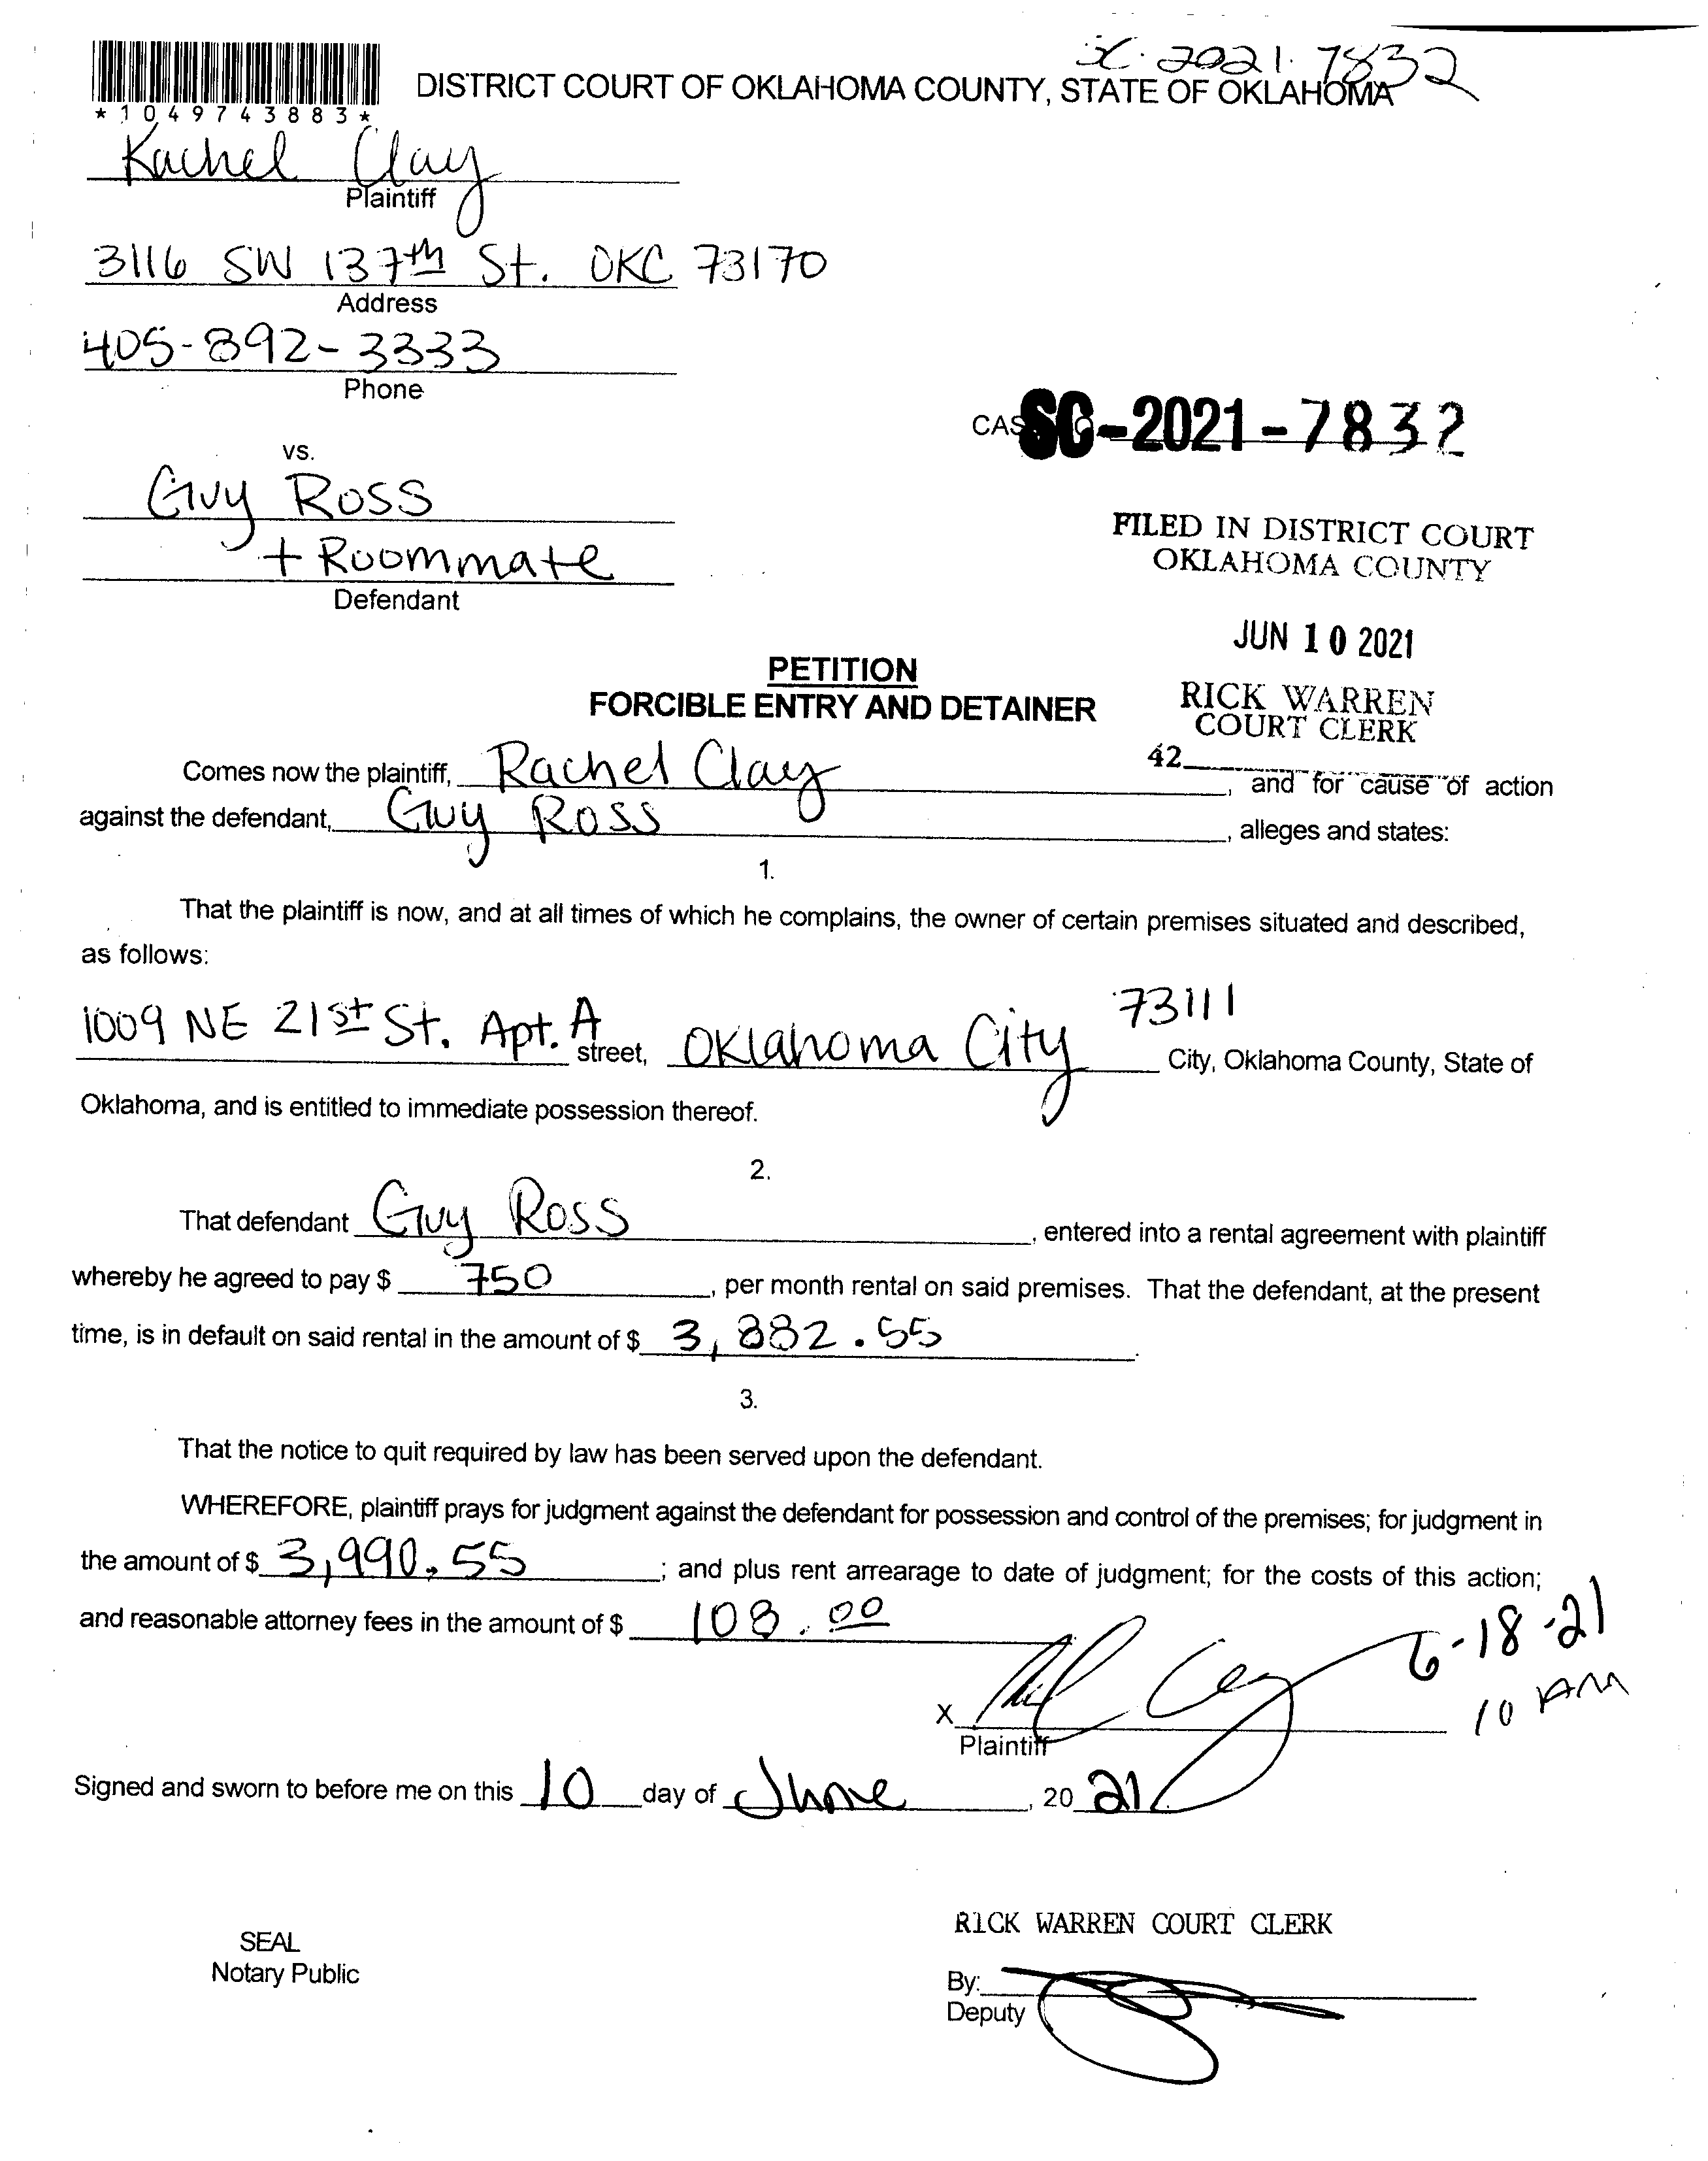 SC-2021-7832
*1049743883*
DISTRICT COURT OF OKLAHOMA COUNTY, STATE OF OKLAHOMA
Rachel Clay
Plaintiff
3116 SW 137th St. OKC 73170
Address
405-892-3333
Phone
CAS SC-2021-7832
vs.
Guy Ross
+ Roommate
Defendant
FILED IN DISTRICT COURT
OKLAHOMA COUNTY
JUN 10 2021
RICK WARREN
COURT CLERK
42
PETITION
FORCIBLE ENTRY AND DETAINER
Comes now the plaintiff, Rachel Clay, and for cause of action
against the defendant, Guy Ross, alleges and states:
1.
That the plaintiff is now, and at all times of which he complains, the owner of certain premises situated and described,
as follows:
1009 NE 21st St. Apt. A street, Oklahoma City 73111 City, Oklahoma County, State of
Oklahoma, and is entitled to immediate possession thereof.
2.
That defendant Guy Ross, entered into a rental agreement with plaintiff
whereby he agreed to pay $ 750, per month rental on said premises. That the defendant, at the present
time, is in default on said rental in the amount of $ 3,882.55.
3.
That the notice to quit required by law has been served upon the defendant.
WHEREFORE, plaintiff prays for judgment against the defendant for possession and control of the premises; for judgment in
the amount of $ 3,990.55; and plus rent arrearage to date of judgment; for the costs of this action;
and reasonable attorney fees in the amount of $ 108.00
6-18-21
10 AM
X
Plaintiff
Signed and sworn to before me on this 10 day of June, 20 21
RICK WARREN COURT CLERK
SEAL
Notary Public
By:
Deputy